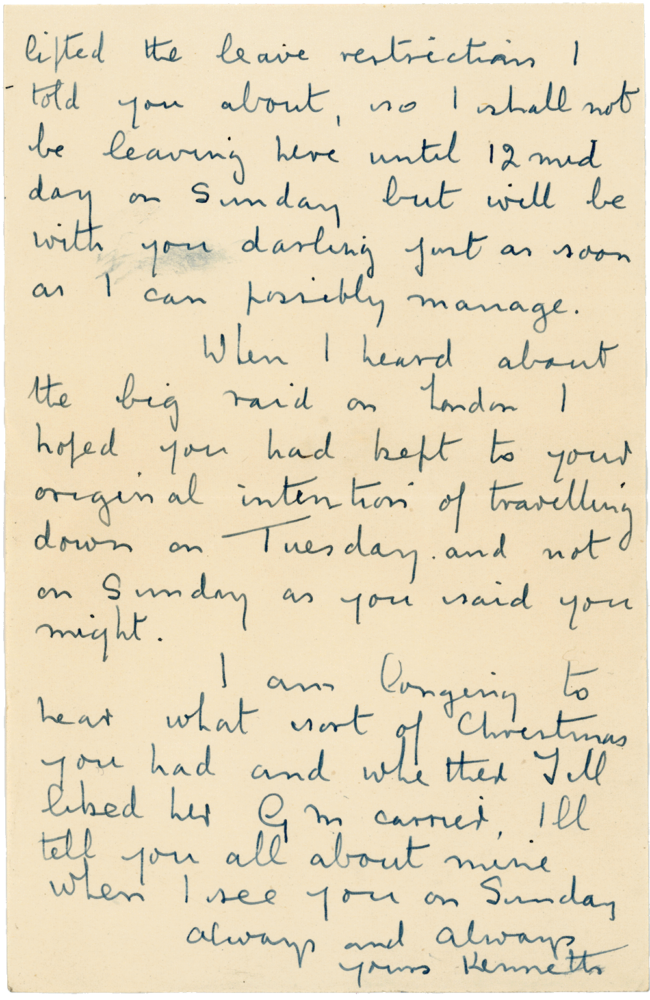 lifted the leave restrictions I
told you about, so I shall not
be leaving here until 12 mid
day on Sunday but will be
with you darling just as soon
as I can possibly manage.
When I heard about
the big raid on London I
hoped you had kept to your
original intention of travelling
down on Tuesday. and not
on Sunday as you said you
might.
I am longing to
hear what sort of Christmas
you had and whether Jill
liked her G m carrier, Ill
tell you all about mine
when I see you on Sunday
always and always
yours Kenneth